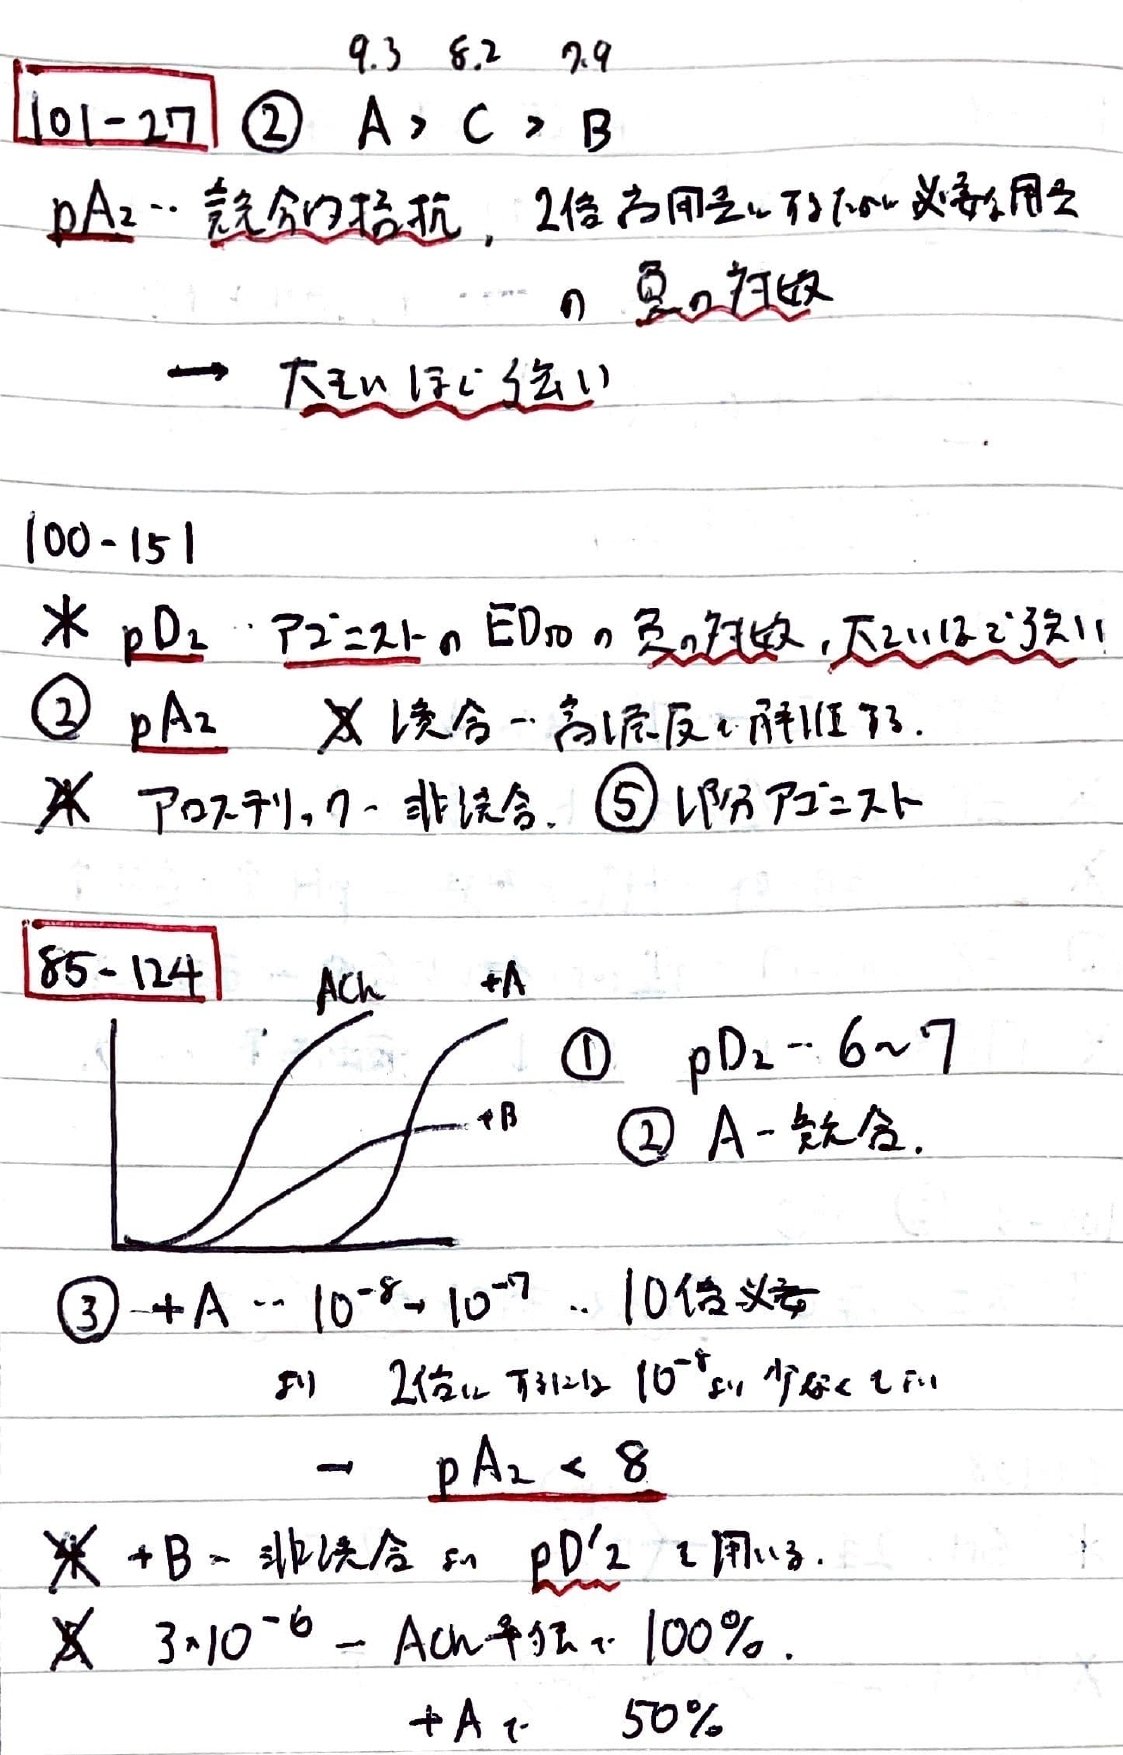 9.3 8.2 7.9
101-27 ② A > C > B
pA₂ ‥ 競合的拮抗, 2倍高用量にするために必要な用量
の 負の対数
→ 大きいほど強い
100-151
pD₂ ‥ アゴニストの ED₅₀ の 負の対数, 大きいほど強い
② pA₂ 競合 - 高濃度で解離する.
アロステリック - 非競合. ⑤ 部分アゴニスト
85-124
ACh +A
+B
① pD₂ ‥ 6~7
② A - 競合.
③ +A ‥ 10⁻⁸ → 10⁻⁷ ‥ 10倍必要
より 2倍にするには 10⁻⁸より少なくてい
→ pA₂ < 8
+B - 非競合 より pD'₂ を用いる.
3×10⁻⁶ - ACh単独で 100%.
+A で 50%